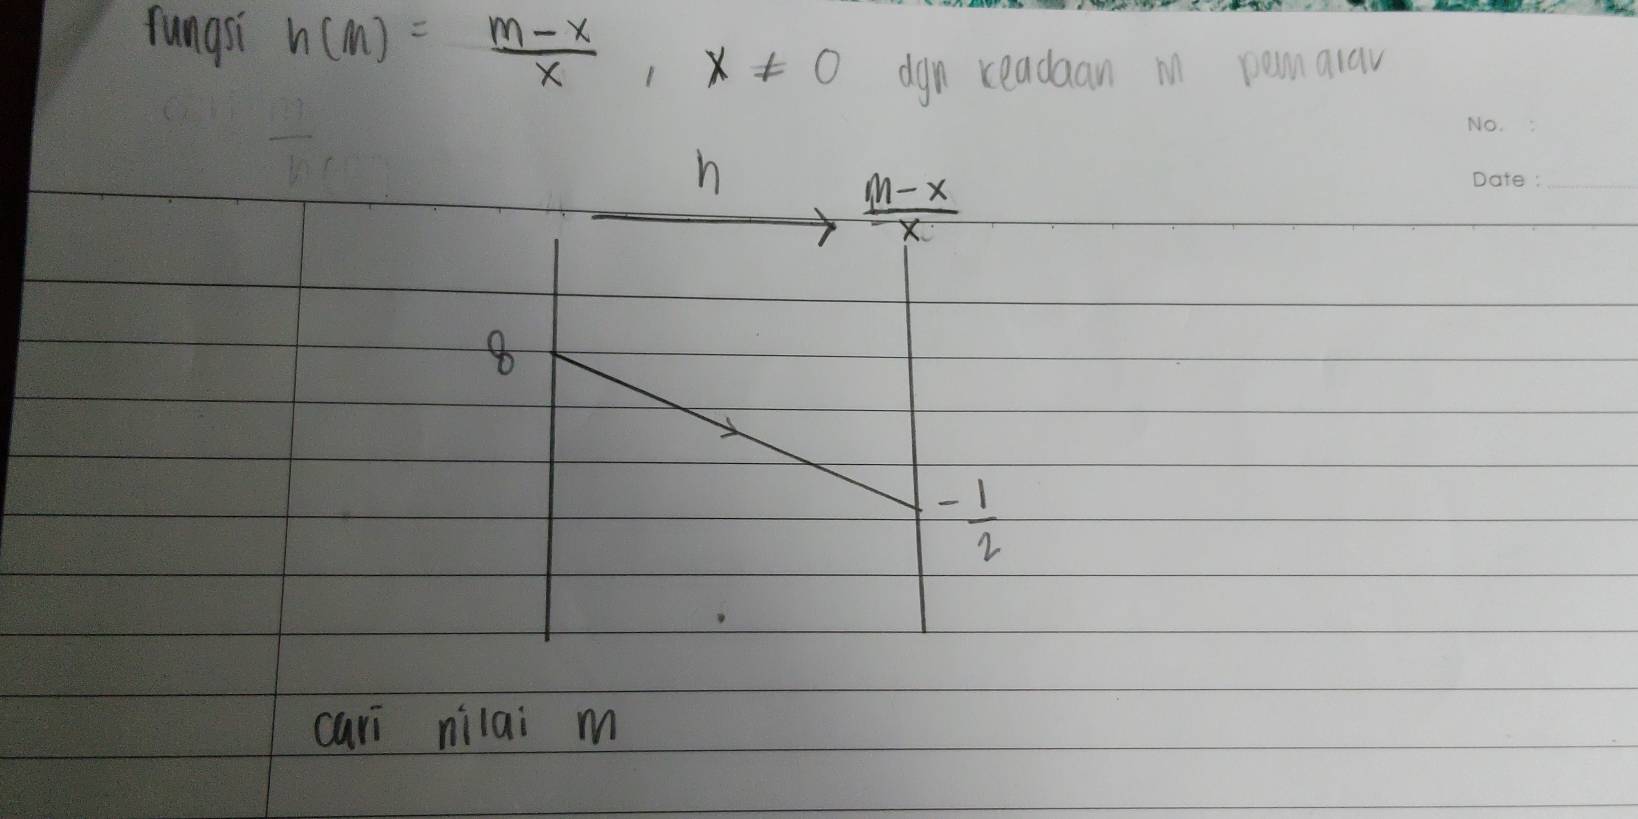 fungsi h(m) = m-x/x , x ≠ 0 dgn keadaan m pemalar
No. :
Date :
h
m-x/x
8
-1/2
cari nilai m